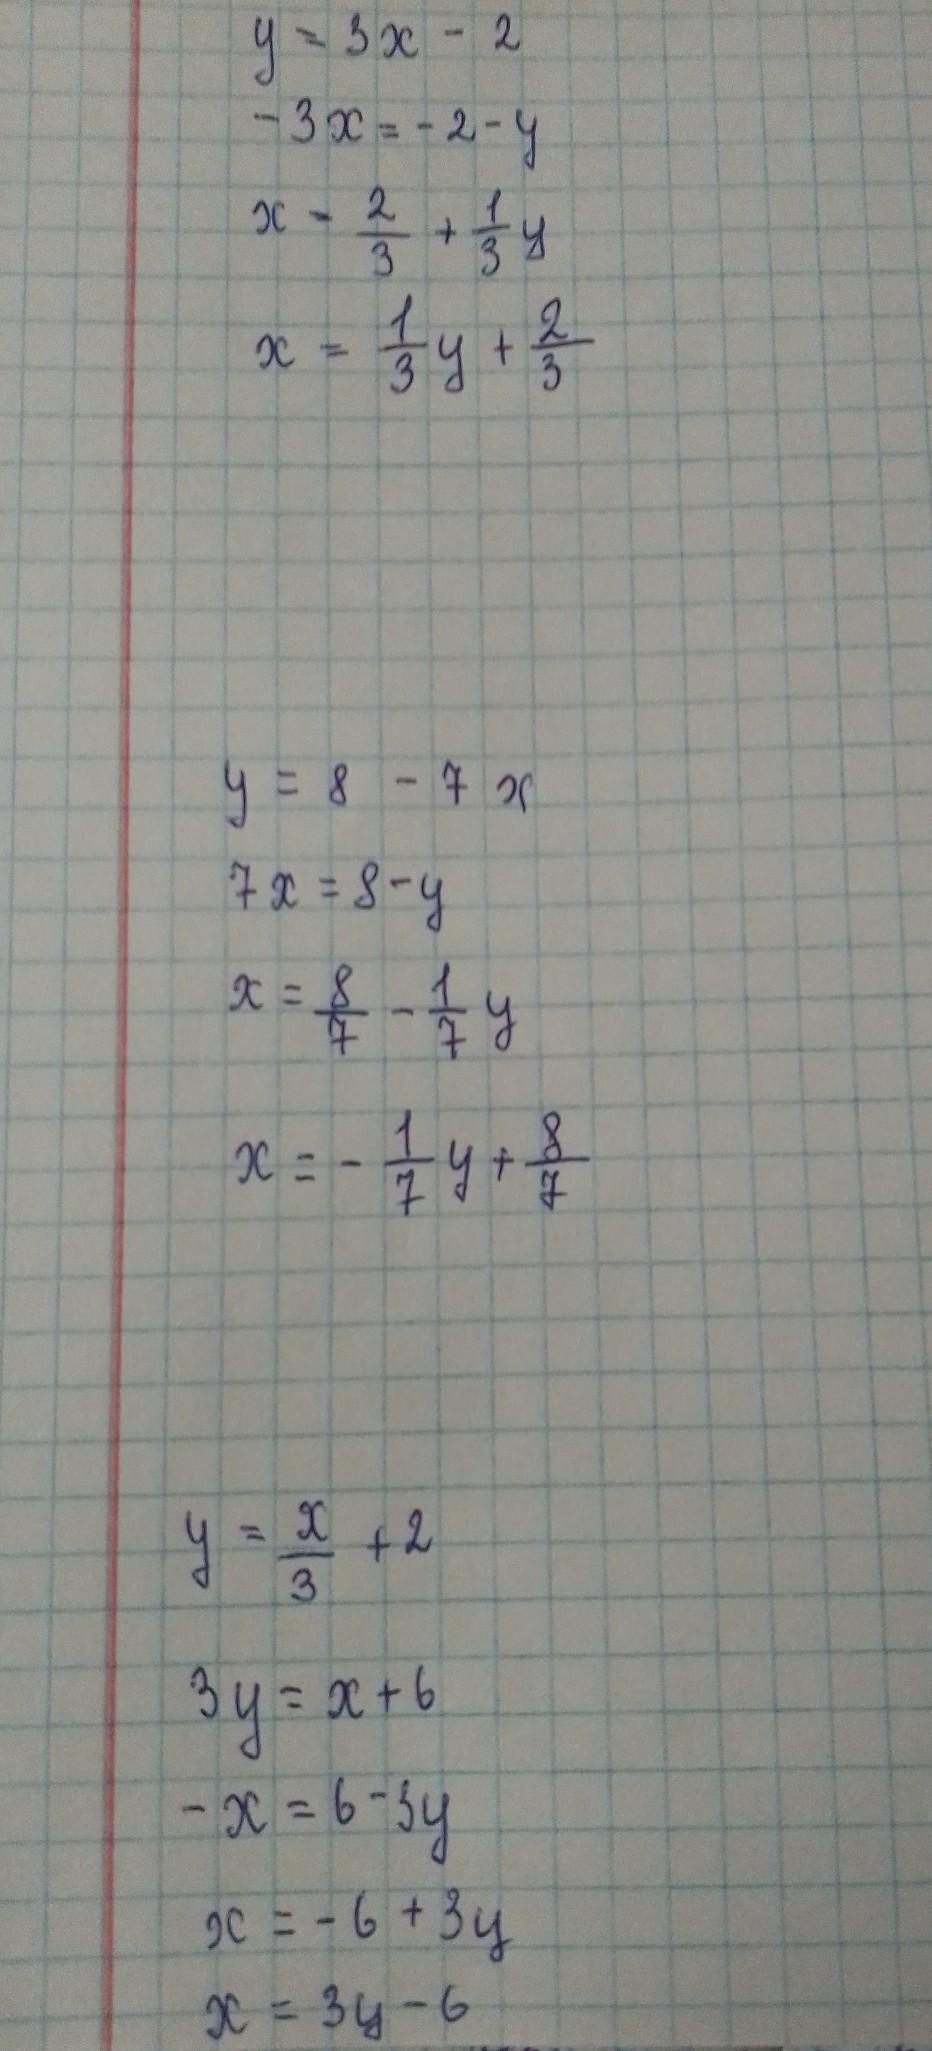 y = 3x - 2
-3x = -2 - y
x - 2/3 + 1/3 y
x = 1/3 y + 2/3
y = 8 - 7 x
7x = 8 - y
x = 8/7 - 1/7 y
x = - 1/7 y + 8/7
y = x/3 + 2
3y = x + 6
-x = 6 - 3y
x = -6 + 3y
x = 3y - 6